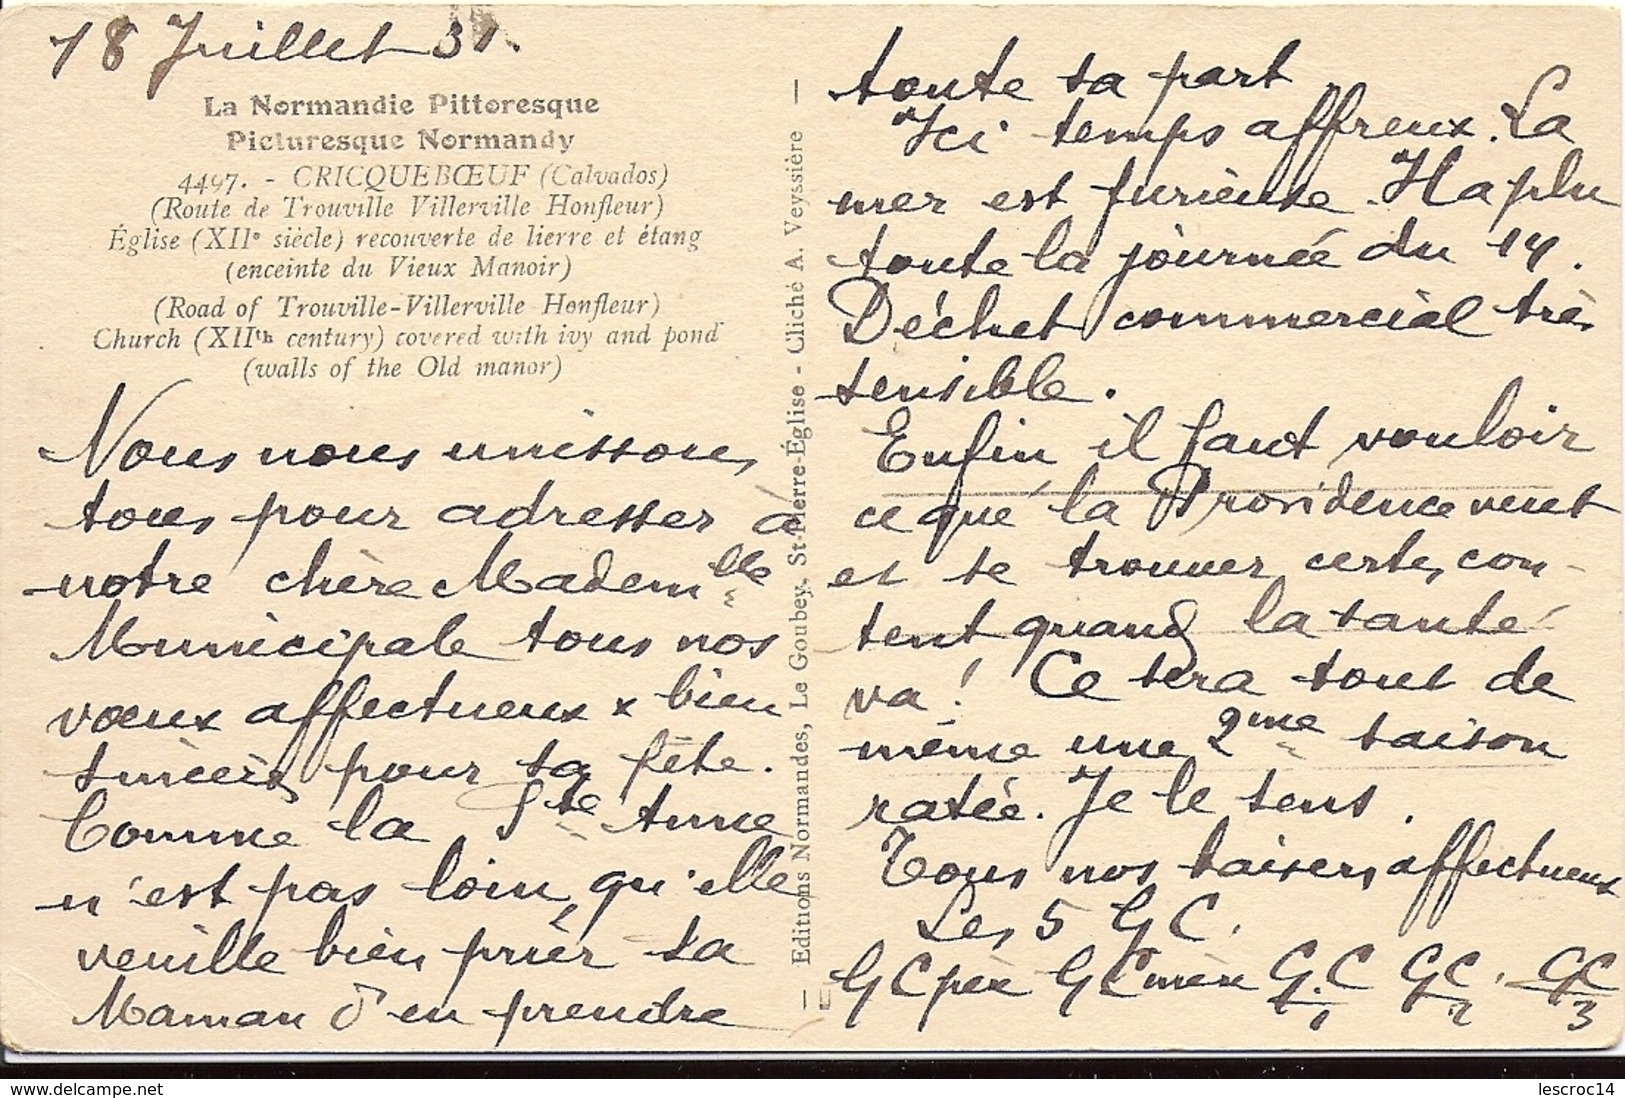 18 Juillet 31.
La Normandie Pittoresque
Picturesque Normandy
4497. - CRICQUEBŒUF (Calvados)
(Route de Trouville Villerville Honfleur)
Église (XIIe siècle) recouverte de lierre et étang
(enceinte du Vieux Manoir)
(Road of Trouville-Villerville Honfleur)
Church (XIIth century) covered with ivy and pond
(walls of the Old manor)
Nous nous unissons
tous pour adresser à
notre chère Mademlle
Municipale tous nos
vœux affectueux x bien
sincères pour sa fête.
Comme la Ste Anne
n'est pas loin, qu'elle
veuille bien prier sa
Maman d'en prendre
Editions Normandes, Le Goubey, St-Pierre-Église - Cliché A. Veyssière
toute sa part
Ici temps affreux. La
mer est furieuse. Il a plu
toute la journée du 14.
Déchet commercial très
sensible.
Enfin il faut vouloir
ce que la Providence veut
et se trouver certes con-
tent quand la santé
va! Ce sera tout de
même une 2me saison
ratée. Je le sens.
Tous nos baisers affectueux
Les 5 GC.
GC père GC mère G.C 1 GC 2 GC 3
lescroc14
www.delcampe.net